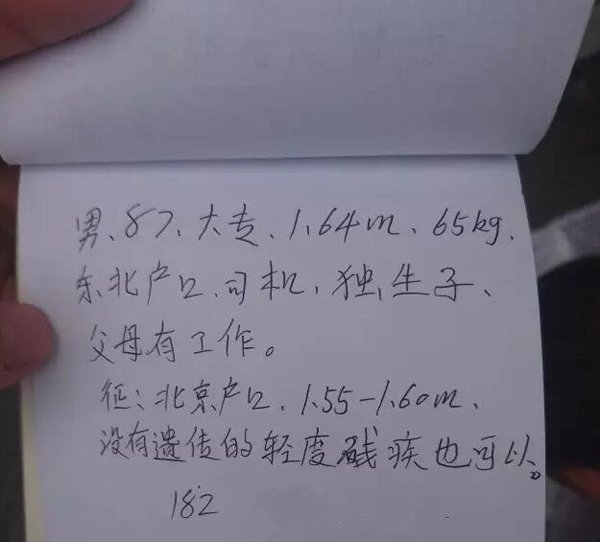 男、87、大专、1.64m、65kg、
东北户口、司机、独生子、
父母有工作。
征：北京户口、1.55-1.60m、
没有遗传的轻度残疾也可以。
182